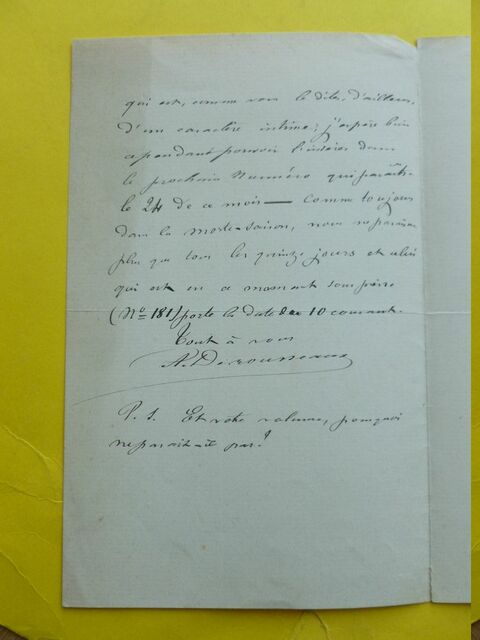 qui est, comme vous le dites, d'ailleurs,
d'un caractère intime; j'espère bien
cependant pouvoir l'insérer dans
le prochain Numéro qui paraîtra
le 24 de ce mois — comme toujours
dans la morte-saison, nous ne paraissons
plus que tous les quinze jours et celui
qui est en ce moment sous presse
(No 181) porte la date du 10 courant.
Tout à vous
A. Desrousseaux
P. S. Et votre volume, pourquoi
ne paraît-il pas?